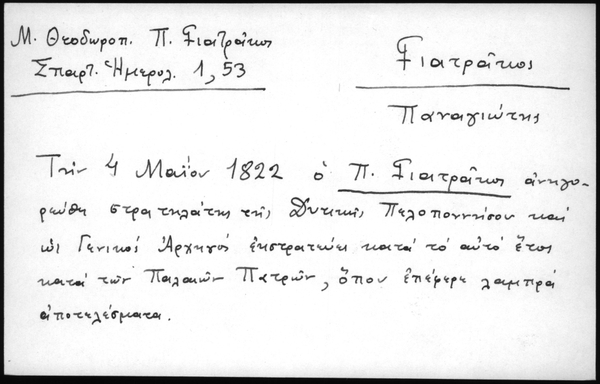 Μ. Θεοδωροπ. Π. Γιατρᾶκος
Σπαρτ. Ἡμερολ. 1, 53
Γιατρᾶκος
Παναγιώτης
Τὴν 4 Μαΐου 1822 ὁ Π. Γιατρᾶκος ἀνηγο-
ρεύθη στρατηλάτης τῆς Δυτικῆς Πελοποννήσου καὶ
ὡς Γενικός Ἀρχηγός ἐκστρατεύει κατά τό αὐτό ἔτος
κατά τῶν Παλαιῶν Πατρῶν, ὅπου ἐπέφερε λαμπρά
ἀποτελέσματα.